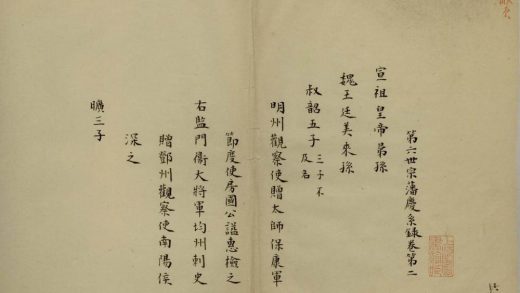 第六世宗藩慶系錄卷第二
宣祖皇帝晜孫
魏王廷美來孫
叔韶五子 三子不及名
明州觀察使贈太師保康軍
節度使房國公謚惠檢之
右監門衛大將軍均州刺史
贈鄧州觀察使南陽侯
深之
曠三子